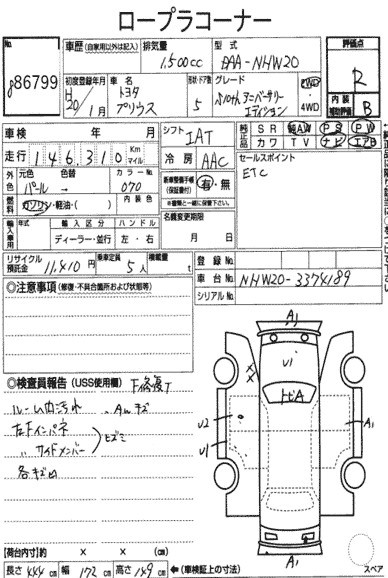 ロープラコーナー
No.
86799
車歴 (自家用以外は記入)
排気量
1,500cc
型式
DAA-NHW20
評価点
R
初度登録年月
H20/1月
車名
トヨタ
プリウス
形状・ドア数
5
グレード
S10thアニバーサリー
エディション
2WD
4WD
内装
補助評価
B
車検 年 月
シフト
IAT
純正品
SR 純AW PS PW
カワ TV ナビ エアB
走行 146,310 Km
マイル
冷房 AAC
セールスポイント
ETC
外色
元色
パール →
色替
カラーNo.
070
新車整備手帳
(保証書付)
有・無
※書類と一緒に保管下さい
燃料 ガソリン・軽油・( )
内装色
名義変更期限
月 日
輸入車用
年式
輸入区分
ディーラー・並行
ハンドル
左・右
リサイクル
預託金
11,410 円
乗車定員
5人
積載量
t
登録No.
車台No. NHW20-3374189
シリアルNo.
◎注意事項 (修復・不具合箇所および状態等)
◎検査員報告 (USS使用欄)
F修復り
ルーム内汚れ
、Aルキズ
右Fインパネ
〃 サイドメンバー
ヒズミ
各キズ凹
A1
U1
トビA
U2
U1
A1
A1
スペア
【荷台内寸】約 × × (cm)
長さ 444 cm 幅 172 cm 高さ 149 cm ←(車検証上の寸法)